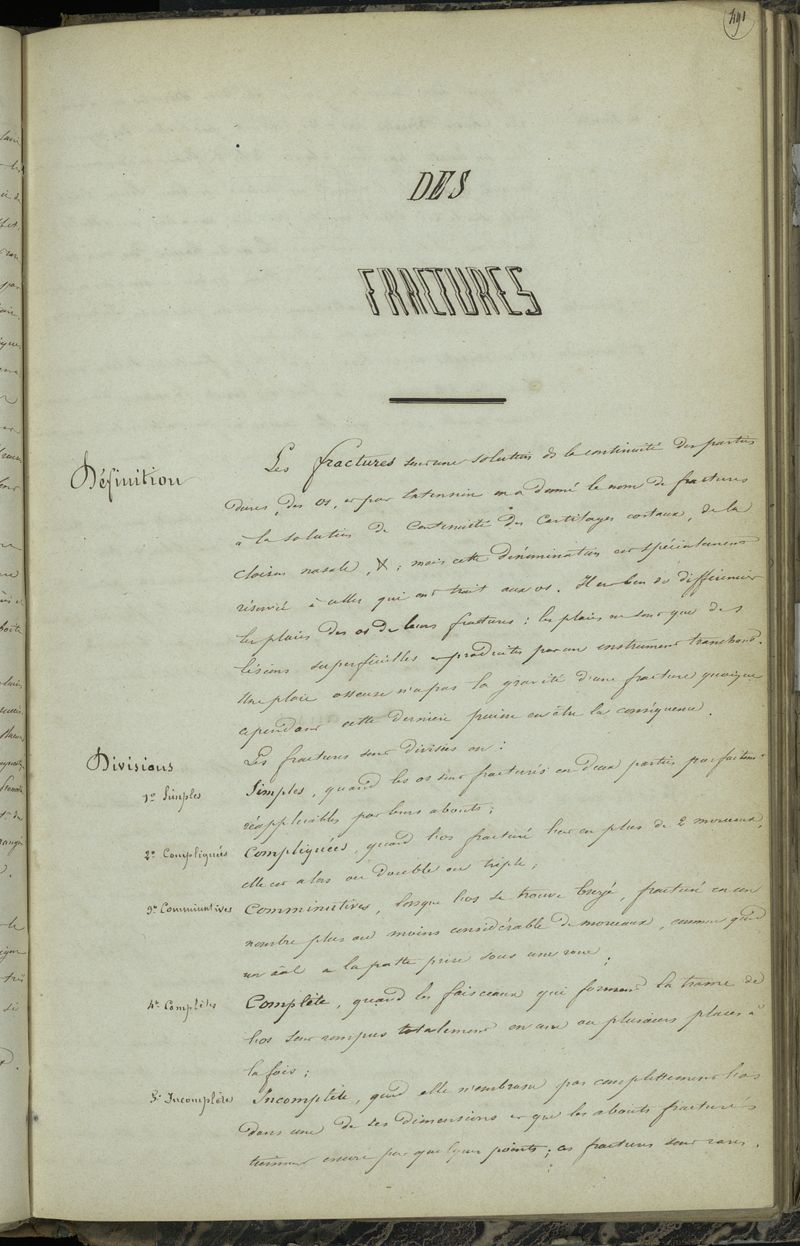 491
DES
FRACTURES
Définition
Les fractures sont une solution de la continuité des parties
dures, des os, et par extension on a donné le nom de fractures
à la solution de continuité des cartilages costaux, de la
cloison nasale, &; mais cette dénomination est spécialement
réservée à celles qui ont trait aux os. Il est bon de différencier
les plaies des os de leurs fractures: les plaies ne sont que des
lésions superficielles et produites par un instrument tranchant.
Une plaie osseuse n'a pas la gravité d'une fracture quoique
cependant cette dernière puisse en être la conséquence.
Divisions
Les fractures sont divisées en:
1º Simples
Simples, quand les os sont fracturés en deux parties parfaitemt
réapplicables par leurs abouts;
2º Compliquées
Compliquées, quand l'os fracturé l'est en plus de 2 morceaux,
elle est alors ou double ou triple;
3º Comminutives
Comminutives, lorsque l'os se trouve broyé, fracturé en un
nombre plus ou moins considérable de morceaux, comme quand
un a la patte prise sous une roue;
4º Complètes
Complète, quand les faisceaux qui forment la trame de
l'os sont rompus totalement en une ou plusieurs places à
la fois;
5º Incomplète
Incomplète, quand elle n'embrasse pas complettement l'os
dans une de ses dimensions et que les abouts fracturés
tiennent encore par quelques points; ces fractures sont rares.